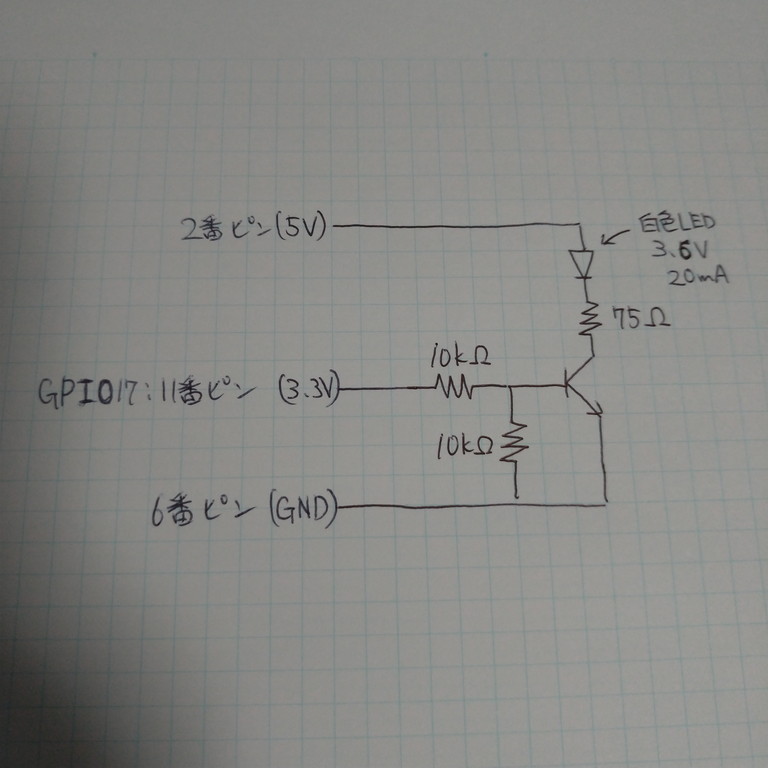 2番ピン(5V)
白色LED
3.6V
20mA
75Ω
10kΩ
GPIO17:11番ピン (3.3V)
10kΩ
6番ピン(GND)